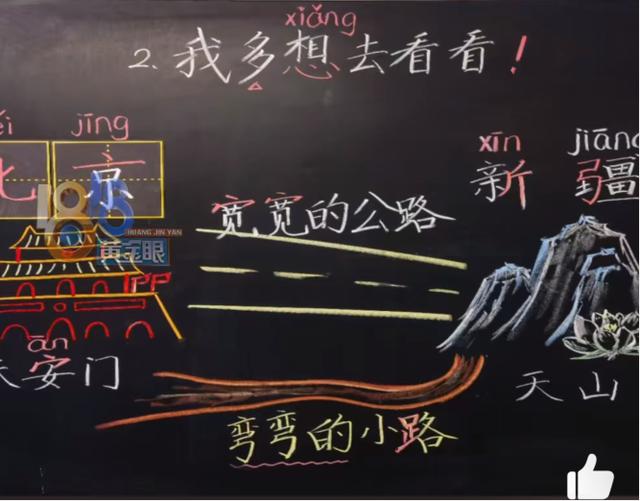 xiǎng
2. 我多想去看看！
jīng
xīn jiāng
京
新疆
1818
HUANG JIN YAN
黄金眼
宽宽的公路
ān
安门
天山
弯弯的小路